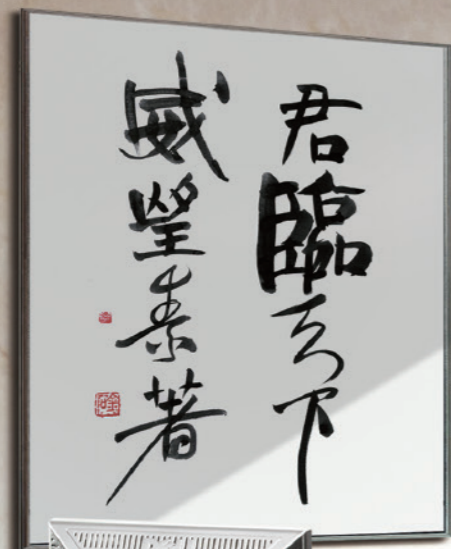 君臨天下
威望素著